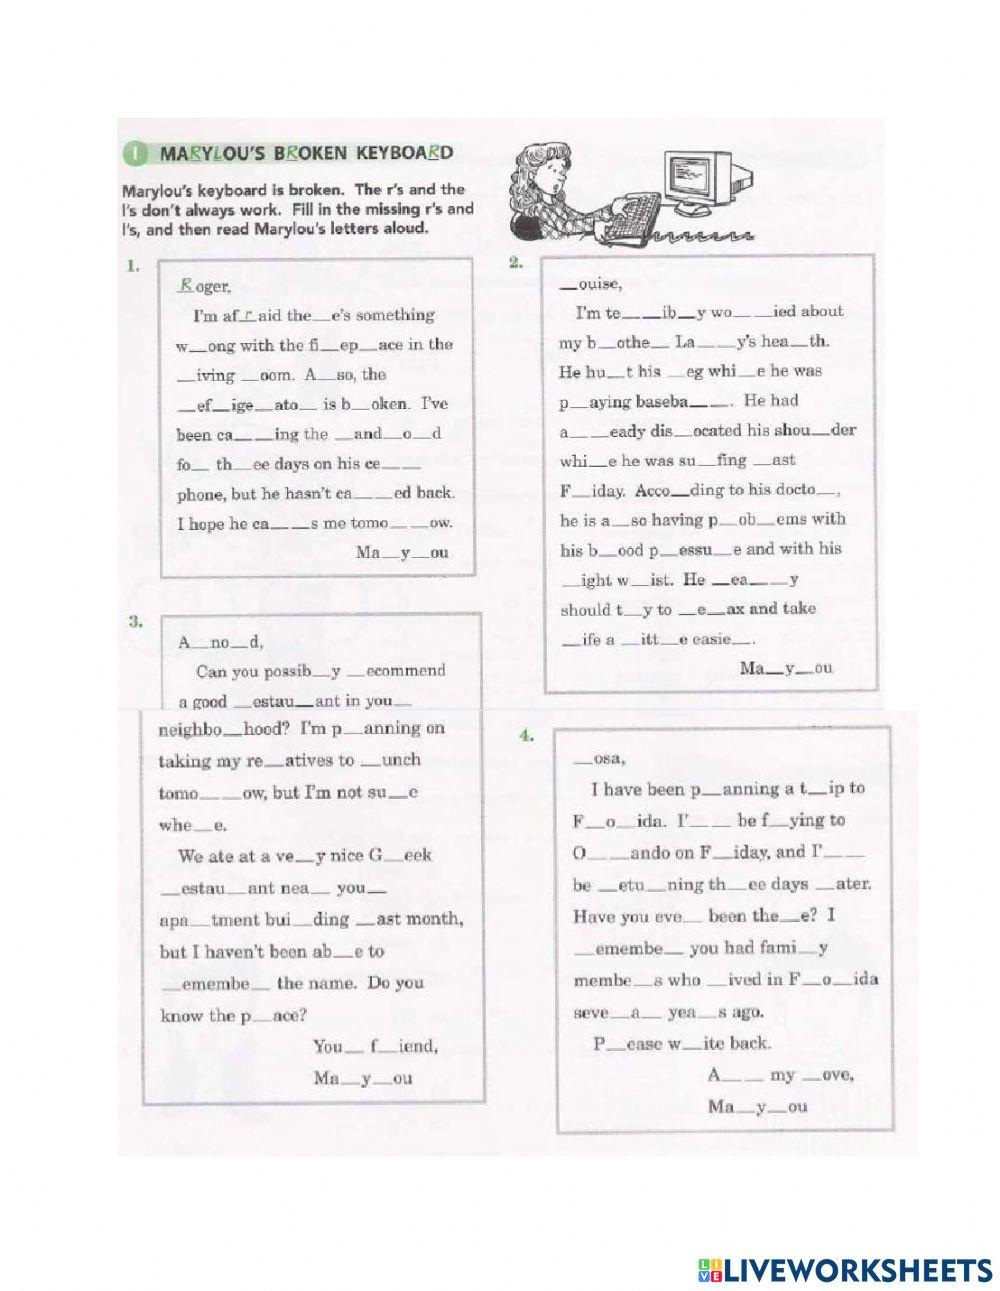 1 MARYLOU'S BROKEN KEYBOARD
Marylou's keyboard is broken. The r's and the
l's don't always work. Fill in the missing r's and
l's, and then read Marylou's letters aloud.
1.
R oger,
I'm af r aid the__e's something
w__ong with the fi__ep__ace in the
__iving __oom. A__so, the
__ef__ige__ato__ is b__oken. I've
been ca__ __ing the __and__o__d
fo__ th__ee days on his ce__ __
phone, but he hasn't ca__ __ed back.
I hope he ca__ __s me tomo__ __ow.
Ma__y__ou
2.
__ouise,
I'm te__ __ib__y wo__ __ied about
my b__othe__ La__ __y's hea__th.
He hu__t his __eg whi__e he was
p__aying baseba__ __. He had
a__ __eady dis__ocated his shou__der
whi__e he was su__fing __ast
F__iday. Acco__ding to his docto__,
he is a__so having p__ob__ems with
his b__ood p__essu__e and with his
__ight w__ist. He __ea__ __y
should t__y to __e__ax and take
__ife a __itt__e easie__.
Ma__y__ou
3.
A__no__d,
Can you possib__y __ecommend
a good __estau__ant in you__
neighbo__hood? I'm p__anning on
taking my re__atives to __unch
tomo__ __ow, but I'm not su__e
whe__e.
We ate at a ve__y nice G__eek
__estau__ant nea__ you__
apa__tment bui__ding __ast month,
but I haven't been ab__e to
__emembe__ the name. Do you
know the p__ace?
You__ f__iend,
Ma__y__ou
4.
__osa,
I have been p__anning a t__ip to
F__o__ida. I'__ __ be f__ying to
O__ __ando on F__iday, and I'__ __
be __etu__ning th__ee days __ater.
Have you eve__ been the__e? I
__emembe__ you had fami__y
membe__s who __ived in F__o__ida
seve__a__ yea__s ago.
P__ease w__ite back.
A__ __ my __ove,
Ma__y__ou
LIVE LIVEWORKSHEETS